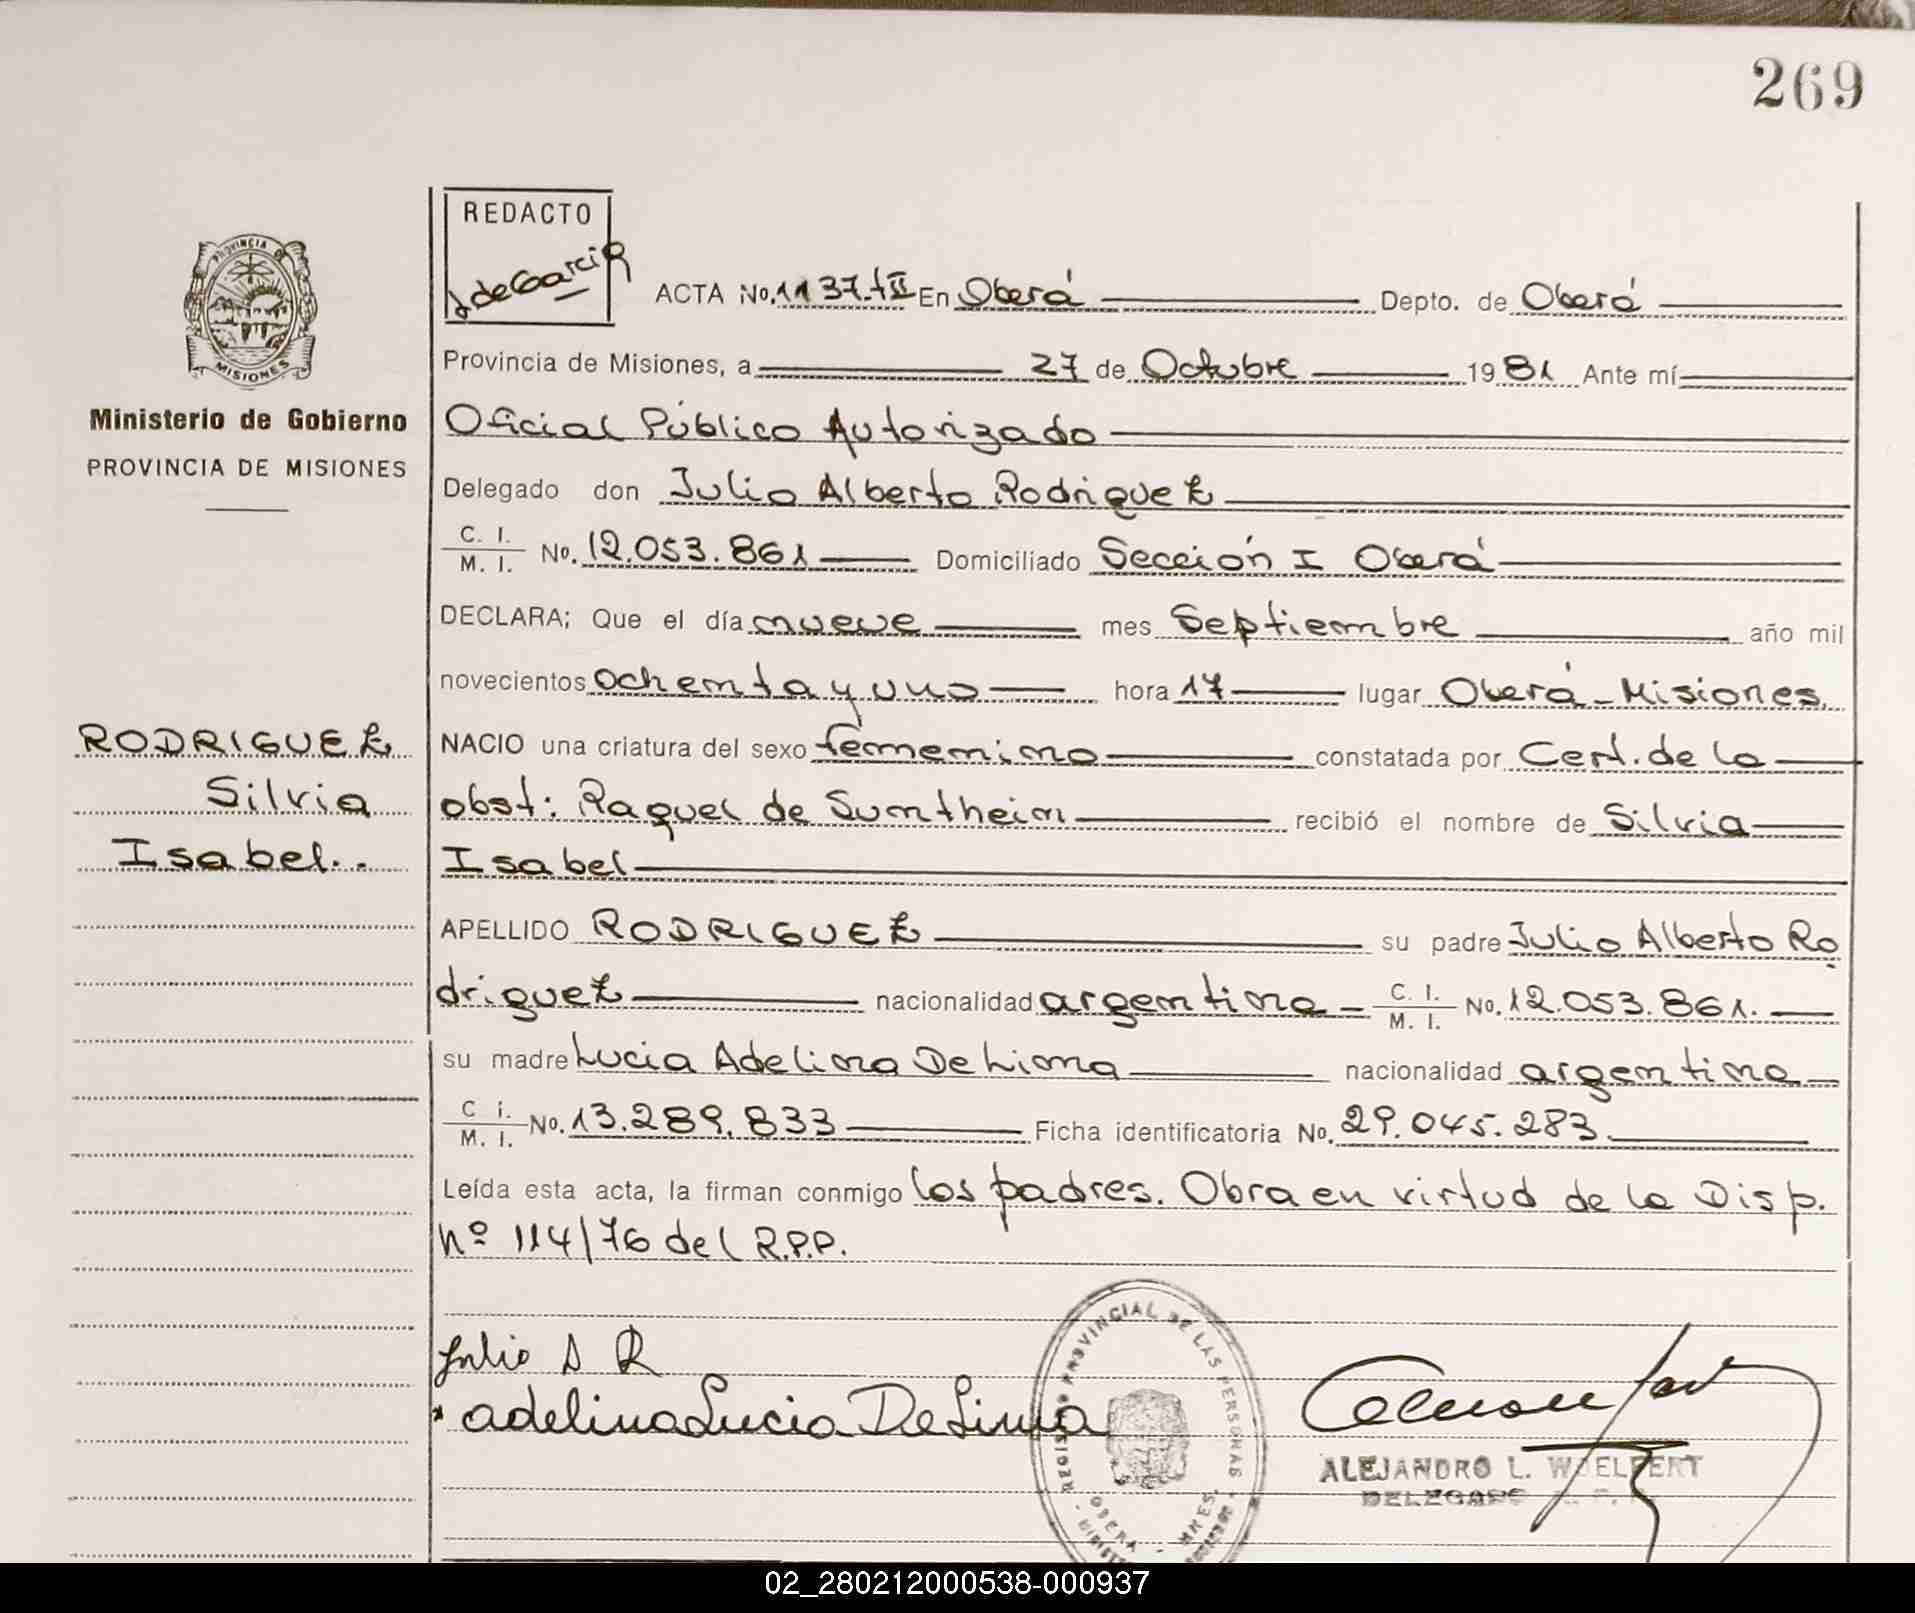 269
REDACTO
deGarcia
ACTA No. 1137-tII En Oberá Depto. de Oberá
Provincia de Misiones, a 27 de Octubre 1981 Ante mí
Oficial Público Autorizado
Delegado don Julio Alberto Rodriguez
C. I. / M. I. No. 12.053.861 Domiciliado Sección I Oberá
DECLARA; Que el día nueve mes Septiembre año mil
novecientos ochenta y uno hora 17 lugar Oberá - Misiones.
NACIO una criatura del sexo femenino constatada por Cert. de la
obst: Raquel de Sumtheim recibió el nombre de Silvia
Isabel
APELLIDO RODRIGUEZ su padre Julio Alberto Ro
driguez nacionalidad argentina - C. I. / M. I. No. 12.053.861.
su madre Lucia Adelina De Lima nacionalidad argentina
C. I. / M. I. No. 13.289.833 Ficha identificatoria No. 29.045.283
Leída esta acta, la firman conmigo los padres. Obra en virtud de la Disp.
Nº 114/76 del R.P.P.
PROVINCIA DE
MISIONES
Ministerio de Gobierno
PROVINCIA DE MISIONES
RODRIGUEZ
Silvia
Isabel..
Julio A R
adelina Lucia De Lima
REGISTRO PROVINCIAL DE LAS PERSONAS
OBERA - MNES.
ALEJANDRO L. WOELFERT
DELEGADO
02_280212000538-000937